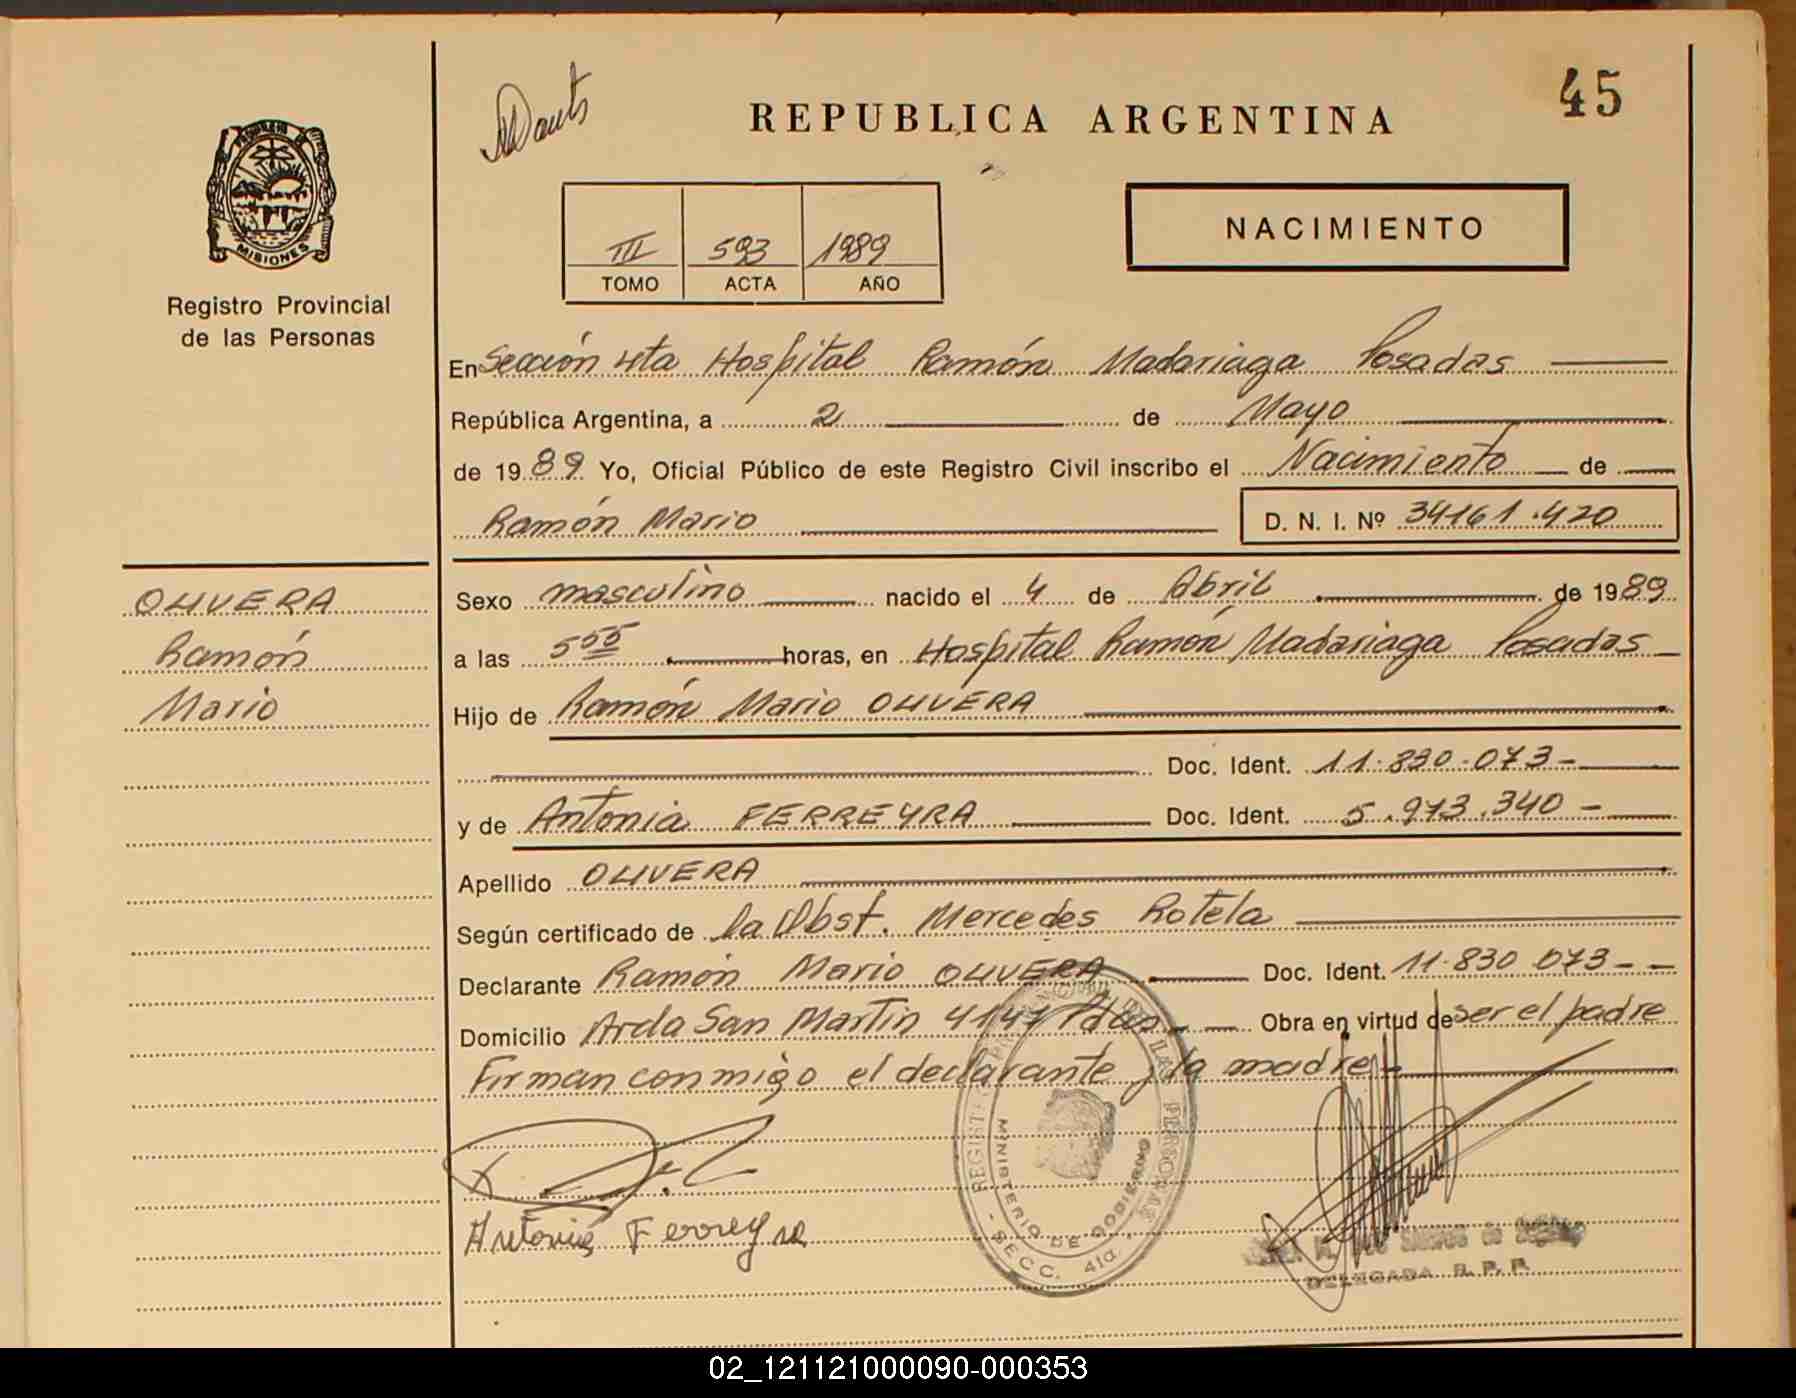 45
REPUBLICA ARGENTINA
PROVINCIA DE
MISIONES
Registro Provincial
de las Personas
III 593 1989
TOMO ACTA AÑO
NACIMIENTO
En Sección 4ta Hospital Ramón Madariaga Posadas
República Argentina, a 2 de Mayo
de 1989 Yo, Oficial Público de este Registro Civil inscribo el Nacimiento de
Ramón Mario D. N. I. Nº 34161.420
OLIVERA
Ramón
Mario
Sexo masculino nacido el 4 de Abril de 1989
a las 5 55 horas, en Hospital Ramón Madariaga Posadas
Hijo de Ramón Mario OLIVERA
Doc. Ident. 11.830.073-
y de Antonia FERREYRA Doc. Ident. 5.973.340-
Apellido OLIVERA
Según certificado de la Obst. Mercedes Rotela
Declarante Ramón Mario OLIVERA Doc. Ident. 11.830 073--
Domicilio Avda San Martín 4147 Pdas- Obra en virtud de ser el padre
Firman conmigo el declarante y la madre-
Antonia Ferreyra
REGISTRO PROVINCIAL DE LAS PERSONAS
MINISTERIO DE GOBIERNO
- SECC. 4ta. -
DELEGADA R. P. P.
02_121121000090-000353